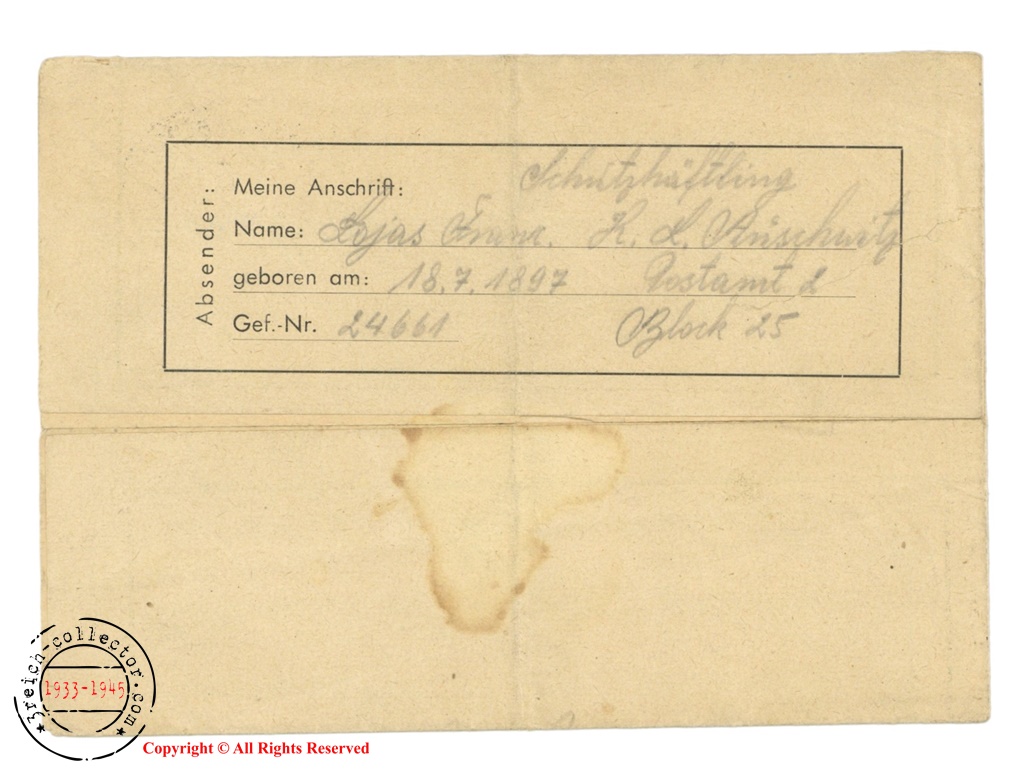 Absender:
Meine Anschrift: Schutzhäftling
Name: Lojas Franz. K. L. Auschwitz
geboren am: 18.7.1897 Postamt 2
Gef.-Nr. 24661 Block 25
3reich-collector.com
1933-1945
Copyright © All Rights Reserved